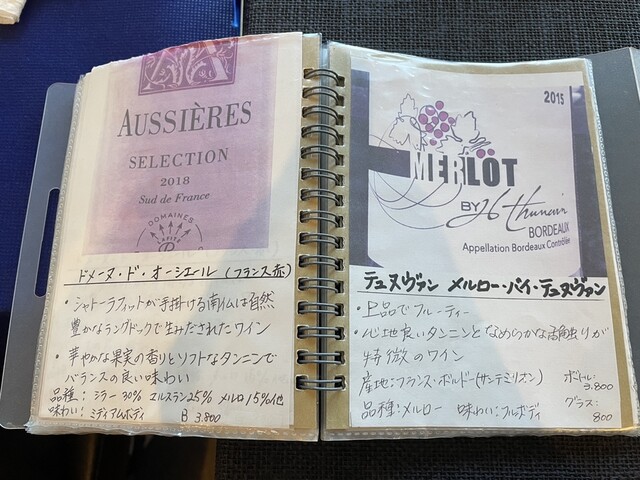 AUSSIÈRES
SELECTION
2018
Sud de France
DOMAINES
ドメーヌ・ド・オーシエール (フランス赤)
・シャトーラフィットが手掛ける南仏は自然
豊かなラングドックで生みだされたワイン
・華やかな果実の香りとソフトなタンニンで
バランスの良い味わい
品種: シラー 30% 25% メルロ 15%他
味わい: ミディアムボディ B 3,800
2015
MERLOT
BY Thunevin
BORDEAUX
Appellation Bordeaux Contrôlée
テュヌヴァン メルロー・バイ・テュヌヴァン
・上品でフルーティー
・心地良いタンニンとなめらかな舌触りが
特徴のワイン
産地:フランス・ボルドー(サンテミリオン) ボトル:
3,800
品種:メルロー 味わい:フルボディ グラス:
800